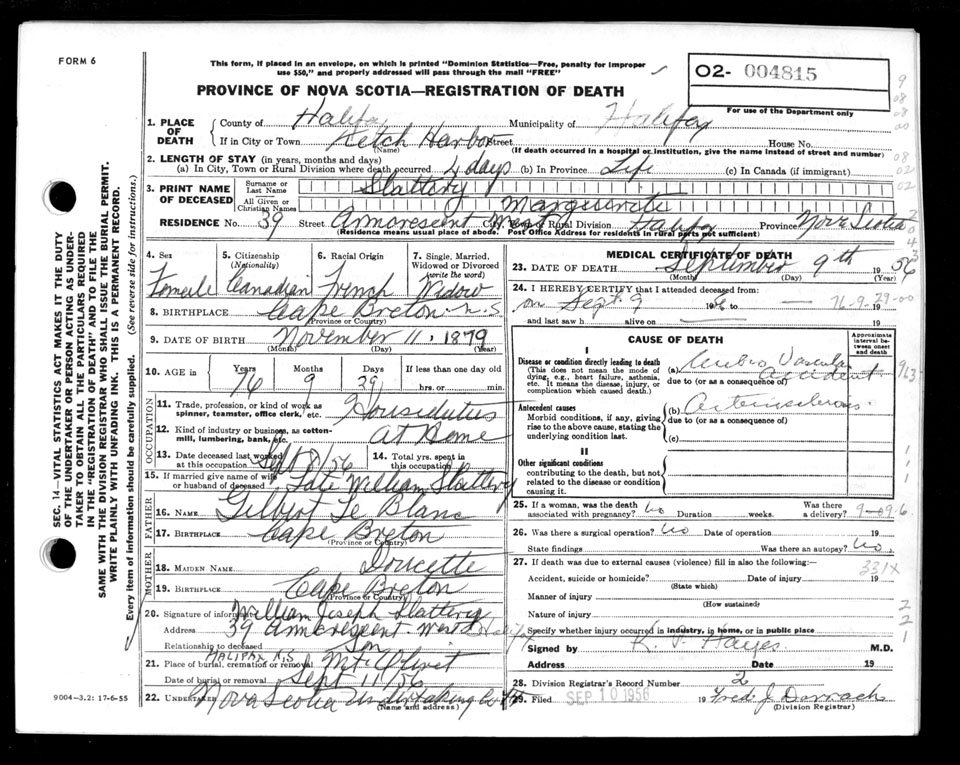 FORM 6
This form, if placed in an envelope, on which is printed "Dominion Statistics—Free, penalty for improper
use $50," and properly addressed will pass through the mail "FREE"
O2- 004815
For use of the Department only
PROVINCE OF NOVA SCOTIA—REGISTRATION OF DEATH
1. PLACE OF DEATH
County of Halifax Municipality of Halifax
If in City or Town Ketch Harbor Street House No.
(Name) (If death occurred in a hospital or institution, give the name instead of street and number)
2. LENGTH OF STAY (in years, months and days)
(a) In City, Town or Rural Division where death occurred 4 days (b) In Province Life (c) In Canada (if immigrant)
3. PRINT NAME OF DECEASED
Surname or Last Name Slattery
All Given or Christian Names Marguerite
RESIDENCE No. 39 Street Armcrescent West City, Town or Rural Division Halifax Province Nova Scotia
(Residence means usual place of abode. Post Office Address for residents in rural parts not sufficient)
4. Sex Female
5. Citizenship (Nationality) Canadian
6. Racial Origin French
7. Single, Married, Widowed or Divorced (write the word) Widow
8. BIRTHPLACE Cape Breton N.S
(Province or Country)
9. DATE OF BIRTH November 11, 1879
(Month) (Day) (Year)
10. AGE in Years 76 Months 9 Days 29 If less than one day old hrs. or min.
OCCUPATION
11. Trade, profession, or kind of work as spinner, teamster, office clerk, etc. Houseduties
12. Kind of industry or business, as cotton-mill, lumbering, bank, etc. At Home
13. Date deceased last worked at this occupation Sept 8/56
14. Total yrs. spent in this occupation
15. If married give name of wife or husband of deceased Late William Slattery
FATHER
16. NAME Gilbert Le Blanc
17. BIRTHPLACE Cape Breton
(Province or Country)
MOTHER
18. MAIDEN NAME Doucette
19. BIRTHPLACE Cape Breton
(Province or Country)
20. Signature of informant William Joseph Slattery
Address 39 Armcrescent West Halifax
Relationship to deceased Son
HALIFAX N.S
21. Place of burial, cremation or removal Mt Olivet
Date of burial or removal Sept 11/56
22. UNDERTAKER Nova Scotia Undertaking Co
(Name and address)
MEDICAL CERTIFICATE OF DEATH
23. DATE OF DEATH September 9th 1956
(Month) (Day) (Year)
24. I HEREBY CERTIFY that I attended deceased from:
on Sept 9 1956 to — 19
76-9-29-00
and last saw h alive on — 19
CAUSE OF DEATH
Approximate interval between onset and death
I
Disease or condition directly leading to death
(This does not mean the mode of dying, e.g., heart failure, asthenia, etc. It means the disease, injury, or complication which caused death.)
(a) Cerebro Vascular Accident
due to (or as a consequence of)
Antecedent causes
Morbid conditions, if any, giving rise to the above cause, stating the underlying condition last.
(b) Arteriosclerosis
due to (or as a consequence of)
(c)
II
Other significant conditions
contributing to the death, but not related to the disease or condition causing it.
25. If a woman, was the death associated with pregnancy? No Duration weeks. Was there a delivery?
26. Was there a surgical operation? No Date of operation 19
State findings Was there an autopsy? No.
27. If death was due to external causes (violence) fill in also the following:—
331X
Accident, suicide or homicide? Date of injury 19
(State which)
Manner of injury
(How sustained)
Nature of injury
Specify whether injury occurred in industry, in home, or in public place
Signed by K. P. Hayes M.D.
Address Date 19
28. Division Registrar's Record Number 2
29. Filed SEP 10 1956 19 Fred J. Darrach
(Division Registrar)
SEC. 14—VITAL STATISTICS ACT MAKES IT THE DUTY
OF THE UNDERTAKER OR PERSON ACTING AS UNDER-
TAKER TO OBTAIN ALL THE PARTICULARS REQUIRED
IN THE "REGISTRATION OF DEATH" AND TO FILE THE
SAME WITH THE DIVISION REGISTRAR WHO SHALL ISSUE THE BURIAL PERMIT.
WRITE PLAINLY WITH UNFADING INK. THIS IS A PERMANENT RECORD.
Every item of information should be carefully supplied. (See reverse side for instructions.)
9004—3.2: 17-6-55